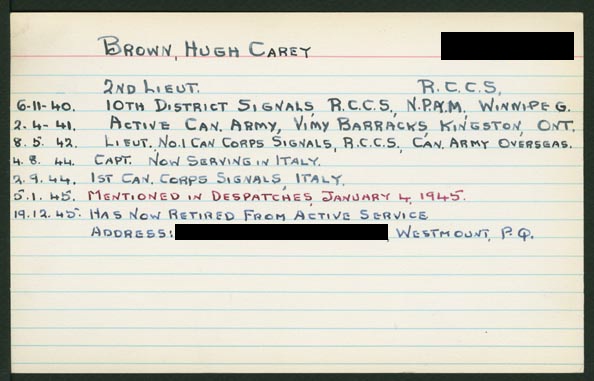 Brown, Hugh Carey
2nd Lieut. R.C.C.S.
6-11-40. 10th District Signals, R.C.C.S., N.P.A.M. Winnipeg.
2.4-41. Active Can. Army, Vimy Barracks, Kingston, Ont.
8.5.42. Lieut. No.1 Can Corps Signals, R.C.C.S., Can. Army Overseas.
4.8.44. Capt. Now Serving in Italy.
2.9.44. 1st Can. Corps Signals, Italy.
5.1.45. Mentioned in Despatches, January 4, 1945.
19.12.45. Has Now Retired From Active Service
Address: , Westmount, P.Q.